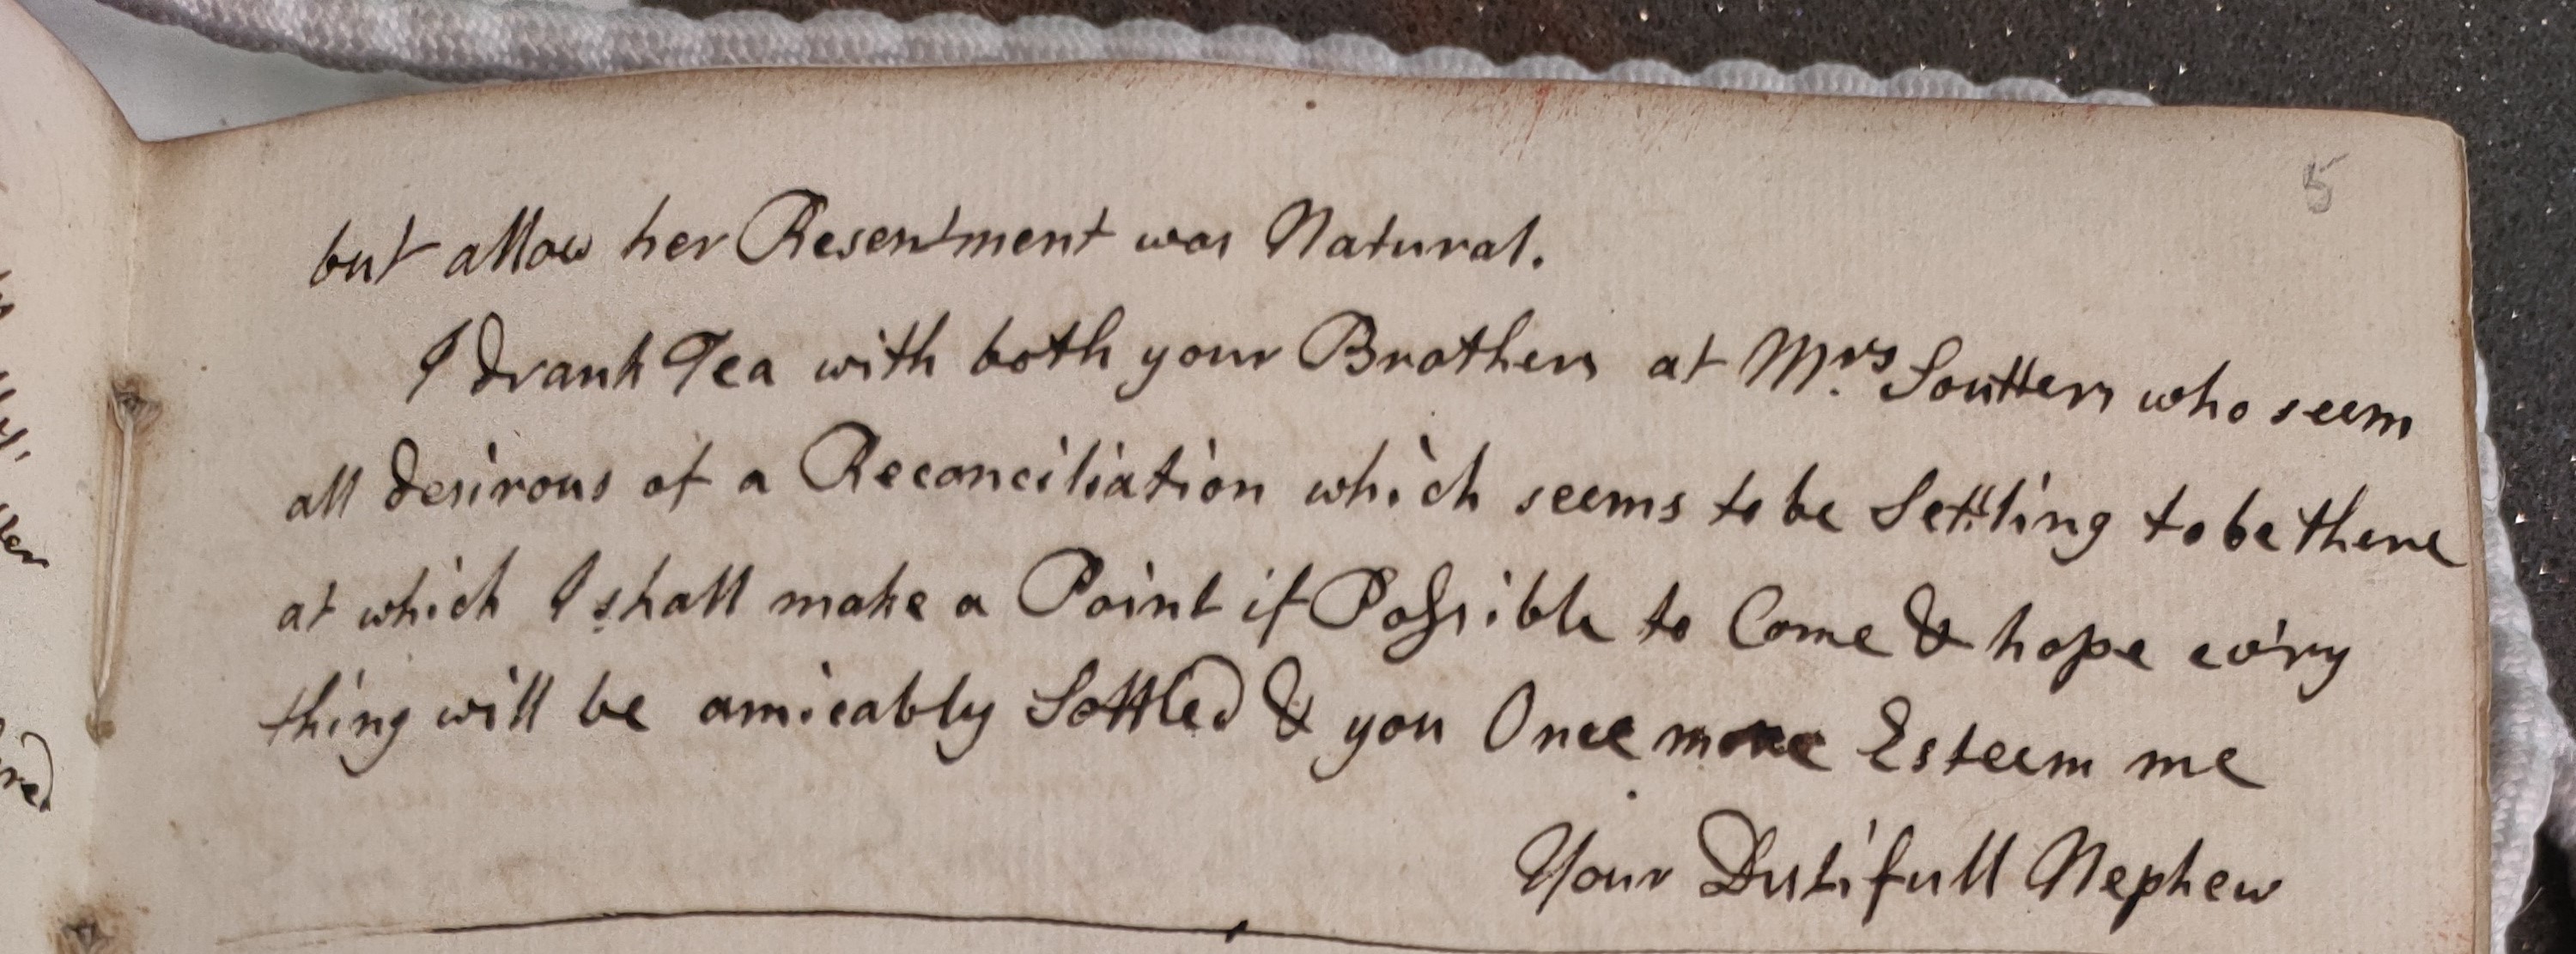 5
but allow her Resentment was Natural.
I drank Tea with both your Brothers at Mrs Soutters who seem
all desirous of a Reconciliation which seems to be Settling to be there
at which I shall make a Point if Possible to Come & hope ev'ry
thing will be amicably Settled & you Once more Esteem me
Your Dutifull Nephew